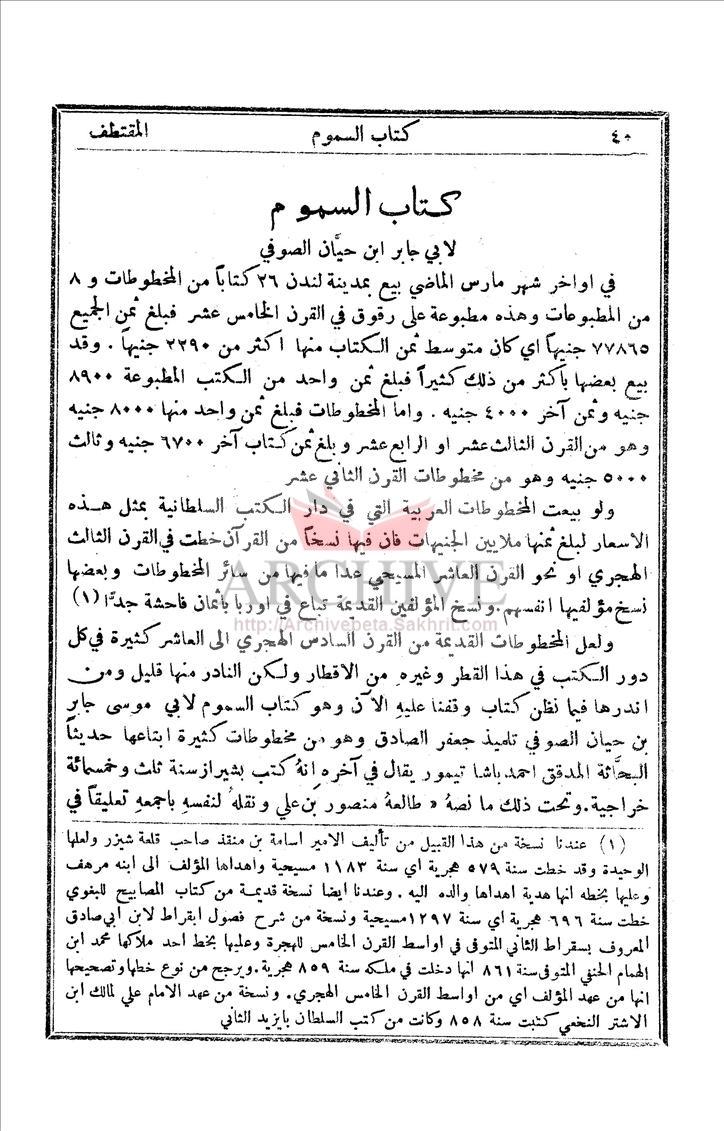 ٤٠ كتاب السموم المقتطف
كتاب السموم
لابي جابر ابن حيَّان الصوفي
في اواخر شهر مارس الماضي بيع بمدينة لندن ٢٦ كتاباً من المخطوطات و ٨
من المطبوعات وهذه مطبوعة على رقوق في القرن الخامس عشر فبلغ ثمن الجميع
٧٧٨٦٥ جنيهاً اي كان متوسط ثمن الكتاب منها اكثر من ٢٢٩٠ جنيهاً . وقد
بيع بعضها بأكثر من ذلك كثيراً فبلغ ثمن واحد من الكتب المطبوعة ٨٩٠٠
جنيه وثمن آخر ٤٠٠٠ جنيه . واما المخطوطات فبلغ ثمن واحد منها ٨٠٠٠ جنيه
وهو من القرن الثالث عشر او الرابع عشر وبلغ ثمن كتاب آخر ٦٧٠٠ جنيه وثالث
٥٠٠٠ جنيه وهو من مخطوطات القرن الثاني عشر
ولو بيعت المخطوطات العربية التي في دار الكتب السلطانية بمثل هذه
الاسعار لبلغ ثمنها ملايين الجنيهات فان فيها نسخاً من القرآن خطت في القرن الثالث
الهجري او نحو القرن العاشر المسيحي عدا ما فيها من سائر المخطوطات وبعضها
نسخ مؤلفيها انفسهم . ونسخ المؤلفين القديمة تباع في اوربا بأثمان فاحشة جدًّا (١)
ARCHIVE
http://Archivebeta.Sakhrit.com
ولعل المخطوطات القديمة من القرن السادس الهجري الى العاشر كثيرة في كل
دور الكتب في هذا القطر وغيره من الاقطار ولكن النادر منها قليل ومن
اندرها فيما نظن كتاب وقفنا عليهِ الآن وهو كتاب السموم لابي موسى جابر
بن حيان الصوفي تلميذ جعفر الصادق وهو من مخطوطات كثيرة ابتاعها حديثاً
البحَّاثة المدقق احمد باشا تيمور يقال في آخره انهُ كتب بشيراز سنة ثلث وخمسمائة
خراجية . وتحت ذلك ما نصهُ « طالعهُ منصور بن علي ونقلهُ لنفسهِ باجمعهِ تعليقاً في
(١) عندنا نسخة من هذا القبيل من تأليف الامير اسامة بن منقذ صاحب قلعة شيزر ولعلها
الوحيدة وقد خطت سنة ٥٧٩ هجرية اي سنة ١١٨٣ مسيحية واهداها المؤلف الى ابنه مرهف
وعليها بخطه انها هدية اهداها والده اليه . وعندنا ايضا نسخة قديمة من كتاب المصابيح للبغوي
خطت سنة ٦٩٦ هجرية اي سنة ١٢٩٧ مسيحية ونسخة من شرح فصول ابقراط لابن ابي صادق
المعروف بسقراط الثاني المتوفى في اواسط القرن الخامس للهجرة وعليها بخط احد ملاكها محمد ابن
الهمام الحنفي المتوفى سنة ٨٦١ انها دخلت في ملكه سنة ٨٥٩ هجرية . ويرجح من نوع خطها وتصحيحها
انها من عهد المؤلف اي من اواسط القرن الخامس الهجري . ونسخة من عهد الامام علي لمالك ابن
الاشتر النخعي كتبت سنة ٨٥٨ وكانت من كتب السلطان بايزيد الثاني